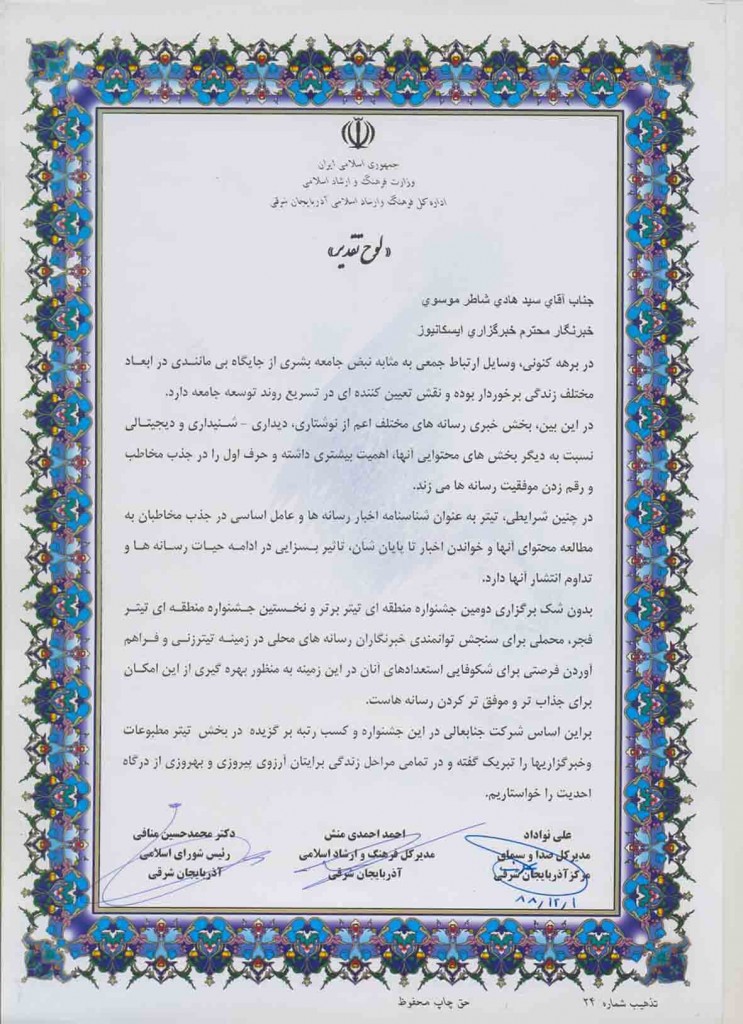 جمهوری اسلامی ایران
وزارت فرهنگ و ارشاد اسلامی
اداره کل فرهنگ و ارشاد اسلامی آذربایجان شرقی
«لوح تقدیر»
جناب آقاي سيد هادي شاطر موسوي
خبرنگار محترم خبرگزاري ايسكانيوز
در برهه کنونی، وسایل ارتباط جمعی به مثابه نبض جامعه بشری از جایگاه بی ماننـدی در ابعـاد
مختلف زندگی برخوردار بوده و نقش تعیین کننده ای در تسریع روند توسعه جامعه دارد.
در این بین، بخش خبری رسانه های مختلف اعم از نوشتاری، دیداری - شـنیداری و دیجیتـالی
نسبت به دیگر بخش های محتوایی آنها، اهمیت بیشتری داشته و حرف اول را در جذب مخاطب
و رقم زدن موفقیت رسانه ها می زند.
در چنین شرایطی، تیتر به عنوان شناسنامه اخبار رسانه ها و عامل اساسی در جذب مخاطبان به
مطالعه محتوای آنها و خواندن اخبار تا پایان شان، تاثیر بـسزایی در ادامـه حیـات رسـانه هـا و
تداوم انتشار آنها دارد.
بدون شک برگزاری دومین جشنواره منطقه ای تیتر برتر و نخـستین جـشنواره منطقـه ای تیتـر
فجر، محملی برای سنجش توانمندی خبرنگاران رسانه های محلی در زمینـه تیترزنـی و فـراهم
آوردن فرصتی برای شکوفایی استعدادهای آنان در این زمینه به منظور بهره گیری از این امکـان
برای جذاب تر و موفق تر کردن رسانه هاست.
براین اساس شرکت جنابعالی در این جشنواره و کسب رتبه بر گزیده در بخش تیتر مطبوعات
وخبرگزاریها را تبریک گفته و در تمامی مراحل زندگی برایتان آرزوی پیروزی و بهروزی از درگاه
احدیت را خواستاریم.
علی نواداد
مدیرکل صدا و سیمای
مرکز آذربایجان شرقی
۸۸/۱۲/۱
احمد احمدی منش
مدیرکل فرهنگ و ارشاد اسلامی
آذربایجان شرقی
دکتر محمدحسین منافی
رئیس شورای اسلامی
آذربایجان شرقی
تذهیب شماره ۲۴
حق چاپ محفوظ